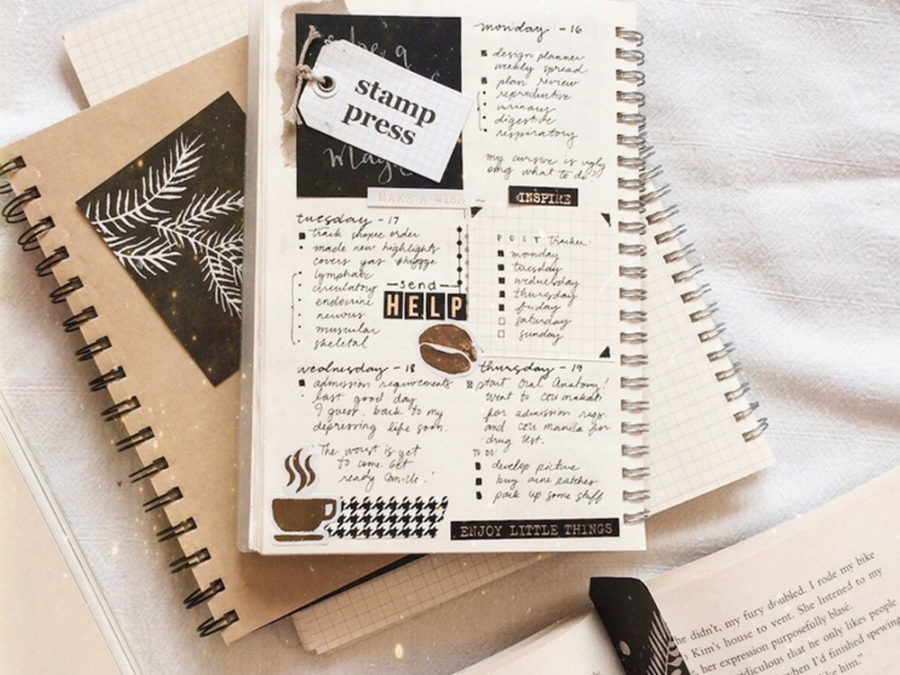 stamp
press
MAKE A WISH
monday - 16
design planner
weekly spread
plan review
reproductive
urinary
digestive
respiratory
my cursive is ugly
omg what to do?
INSPIRE
tuesday - 17
track shopee order
made new highlights
covers yas #hygge
lymphatic
circulatory
endocrine
nervous
muscular
skeletal
send
HELP
POST Tracker:
monday
tuesday
wednesday
thursday
friday
saturday
sunday
wednesday - 18
admission requirements
last good day
I guess. back to my
depressing life soon.
The worst is yet
to come get
ready
thursday - 19
start Oral Anatomy!
went to ceu makati
for admission reqs.
and ceu manila for
drug test.
TO DO:
develop picture
buy acne patches
pack up some stuff
ENJOY LITTLE THINGS
he didn't, my fury doubled. I rode my bike
Kim's house to vent. She listened to my
, her expression purposefully blasé.
ridiculous that he only likes people
when I'd finished spewing
like him."